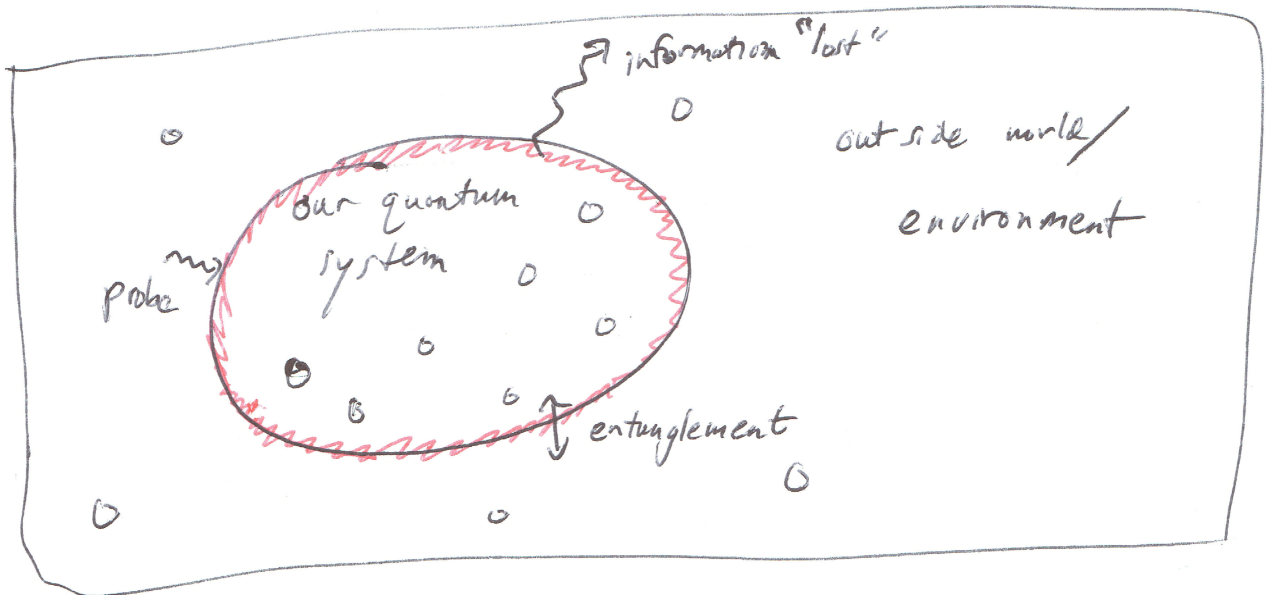 information "lost"
outside world/
environment
our quantum
system
probe
entanglement